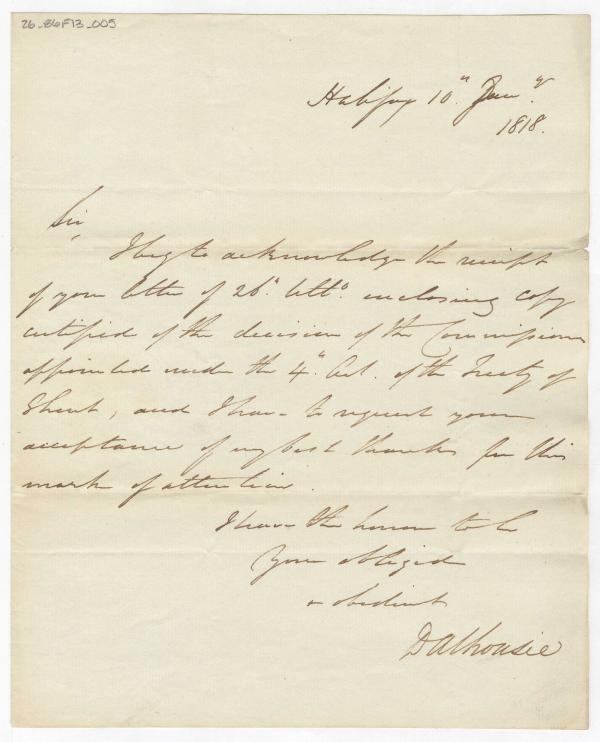 26_B6F13_005
Halifax 10" Jany.
1818.
Sir
I beg to acknowledge the receipt
of your letter of 26" Ulto. enclosing copy
certified of the decision of the Commissioners
appointed under the 4" Art. of the Treaty of
Ghent, and I have to request your
acceptance of my best thanks for this
mark of attention.
I have the honor to be
Your obliged
& obedient
Dalhousie